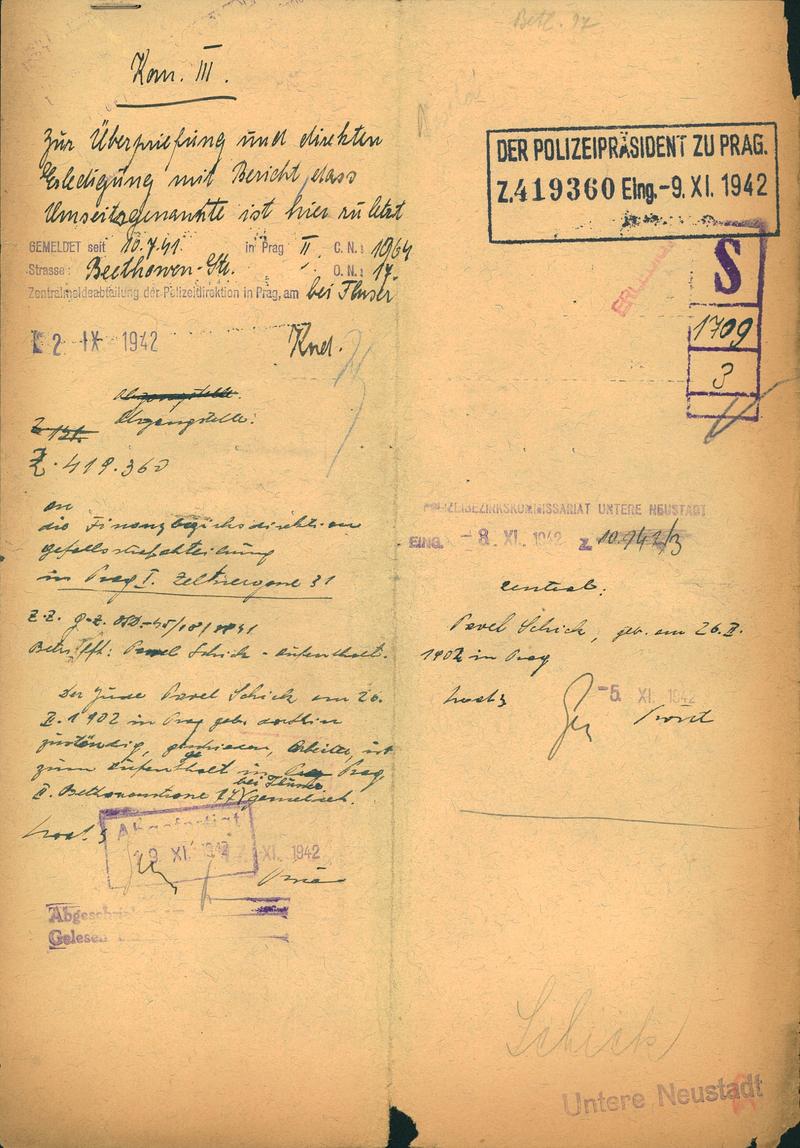 Kom. III.
Zur Überpriefung und direkten
Erledigung mit Bericht, dass
Umseitsgenannte ist hier zuletzt
GEMELDET seit 10.7.41. in Prag II C.N.: 1964
Strasse: Beethowen-Str. O.N.: 17.
Zentralmeldeabteilung der Polizeidirektion in Prag, am bei Fluser
2 IX 1942
Abgangstelle:
Z. 419.360
an
die Finanzbezirksdirektion
in Prag I. Zeltnergasse 31
Betrifft: Pavel Schick - Aufenthalt.
Der Jude Pavel Schick am 26.
II. 1902 in Prag geb. dorthin
zuständig, geschieden, Arbeiter, ist
zum Aufenthalt in Prag
bei Fluser
II. Beethovenstrasse 17 gemeldet.
Abgefertigt
9 XI. 1942
XI. 1942
Abgeschrie
Gelesen
Betl. 97
DER POLIZEIPRÄSIDENT ZU PRAG.
Z. 419360 Eing. -9. XI. 1942
S
1709
3
POLIZEIBEZIRKSKOMMISSARIAT UNTERE NEUSTADT
EING. -8. XI. 1942 Z. 10.942/3
Central:
Pavel Schick, geb. am 26. II.
1902 in Prag
-5. XI. 1942
Schick
Untere Neustadt